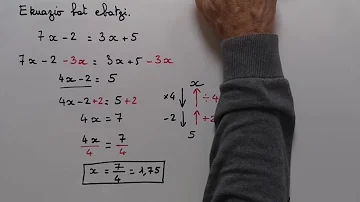 Ekuazio bat ebatzi.
7x - 2 = 3x + 5
7x - 2 - 3x = 3x + 5 - 3x
4x - 2 = 5
4x - 2 + 2 = 5 + 2
4x = 7
4x/4 = 7/4
x = 7/4 = 1,75
x
×4 ↓ ↑ ÷4
-2 ↓ ↑ +2
5